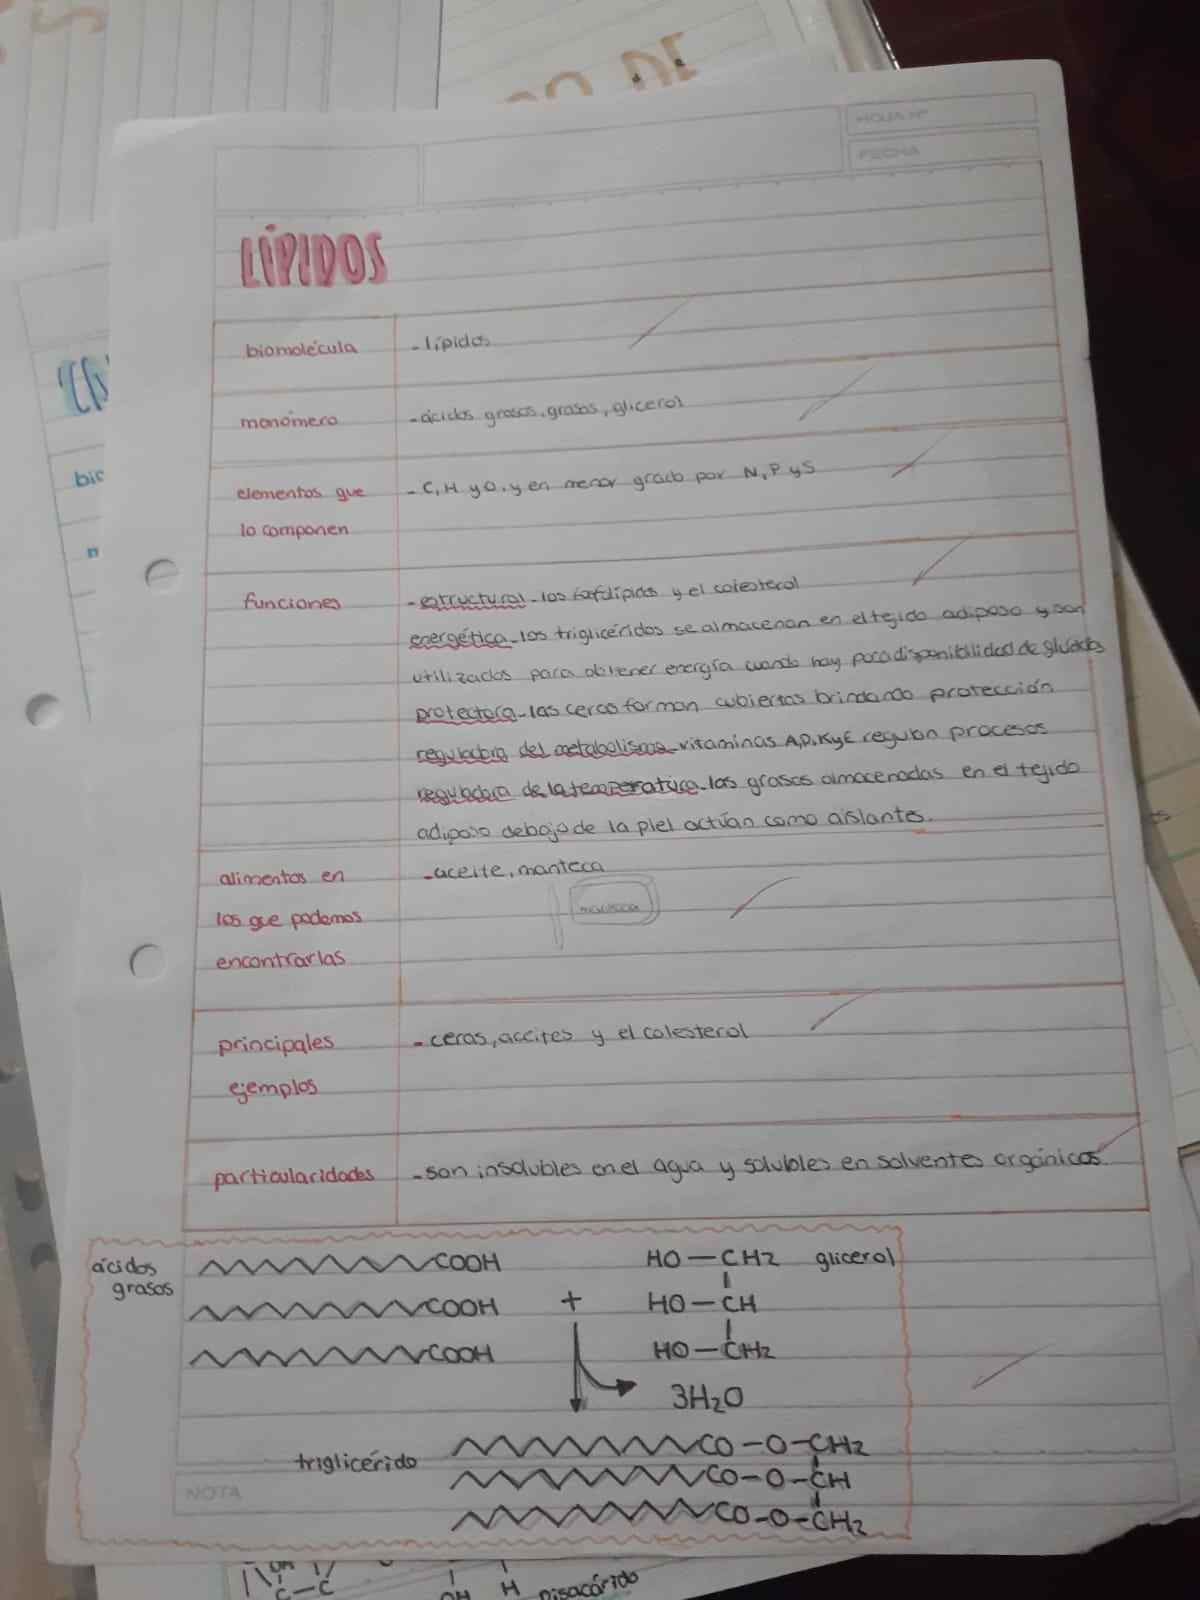 DO DE
HOJA Nº
FECHA
LÍPIDOS
biomolécula
- lípidos
monómero
- ácidos grasos, grasas, glicerol
elementos que
lo componen
- C, H y O, y en menor grado por N, P y S
funciones
- estructural - los fosfolípidos y el colesterol
energética - los triglicéridos se almacenan en el tejido adiposo y son
utilizados para obtener energía cuando hay poca disponibilidad de glúcidos
protectora - las ceras forman cubiertas brindando protección
reguladora del metabolismo - vitaminas A, D, K y E regulan procesos
reguladora de la temperatura - las grasas almacenadas en el tejido
adiposo debajo de la piel actúan como aislantes.
alimentos en
los que podemos
encontrarlas
- aceite, manteca
principales
ejemplos
- ceras, aceites y el colesterol
particularidades
- son insolubles en el agua y solubles en solventes orgánicos.
ácidos
grasos
COOH
HO — CH2 glicerol
COOH + HO — CH
COOH
HO — CH2
3H2O
triglicérido
CO - O - CH2
CO - O - CH
CO - O - CH2
NOTA
bio
OH
C - C
OH H Disacárido